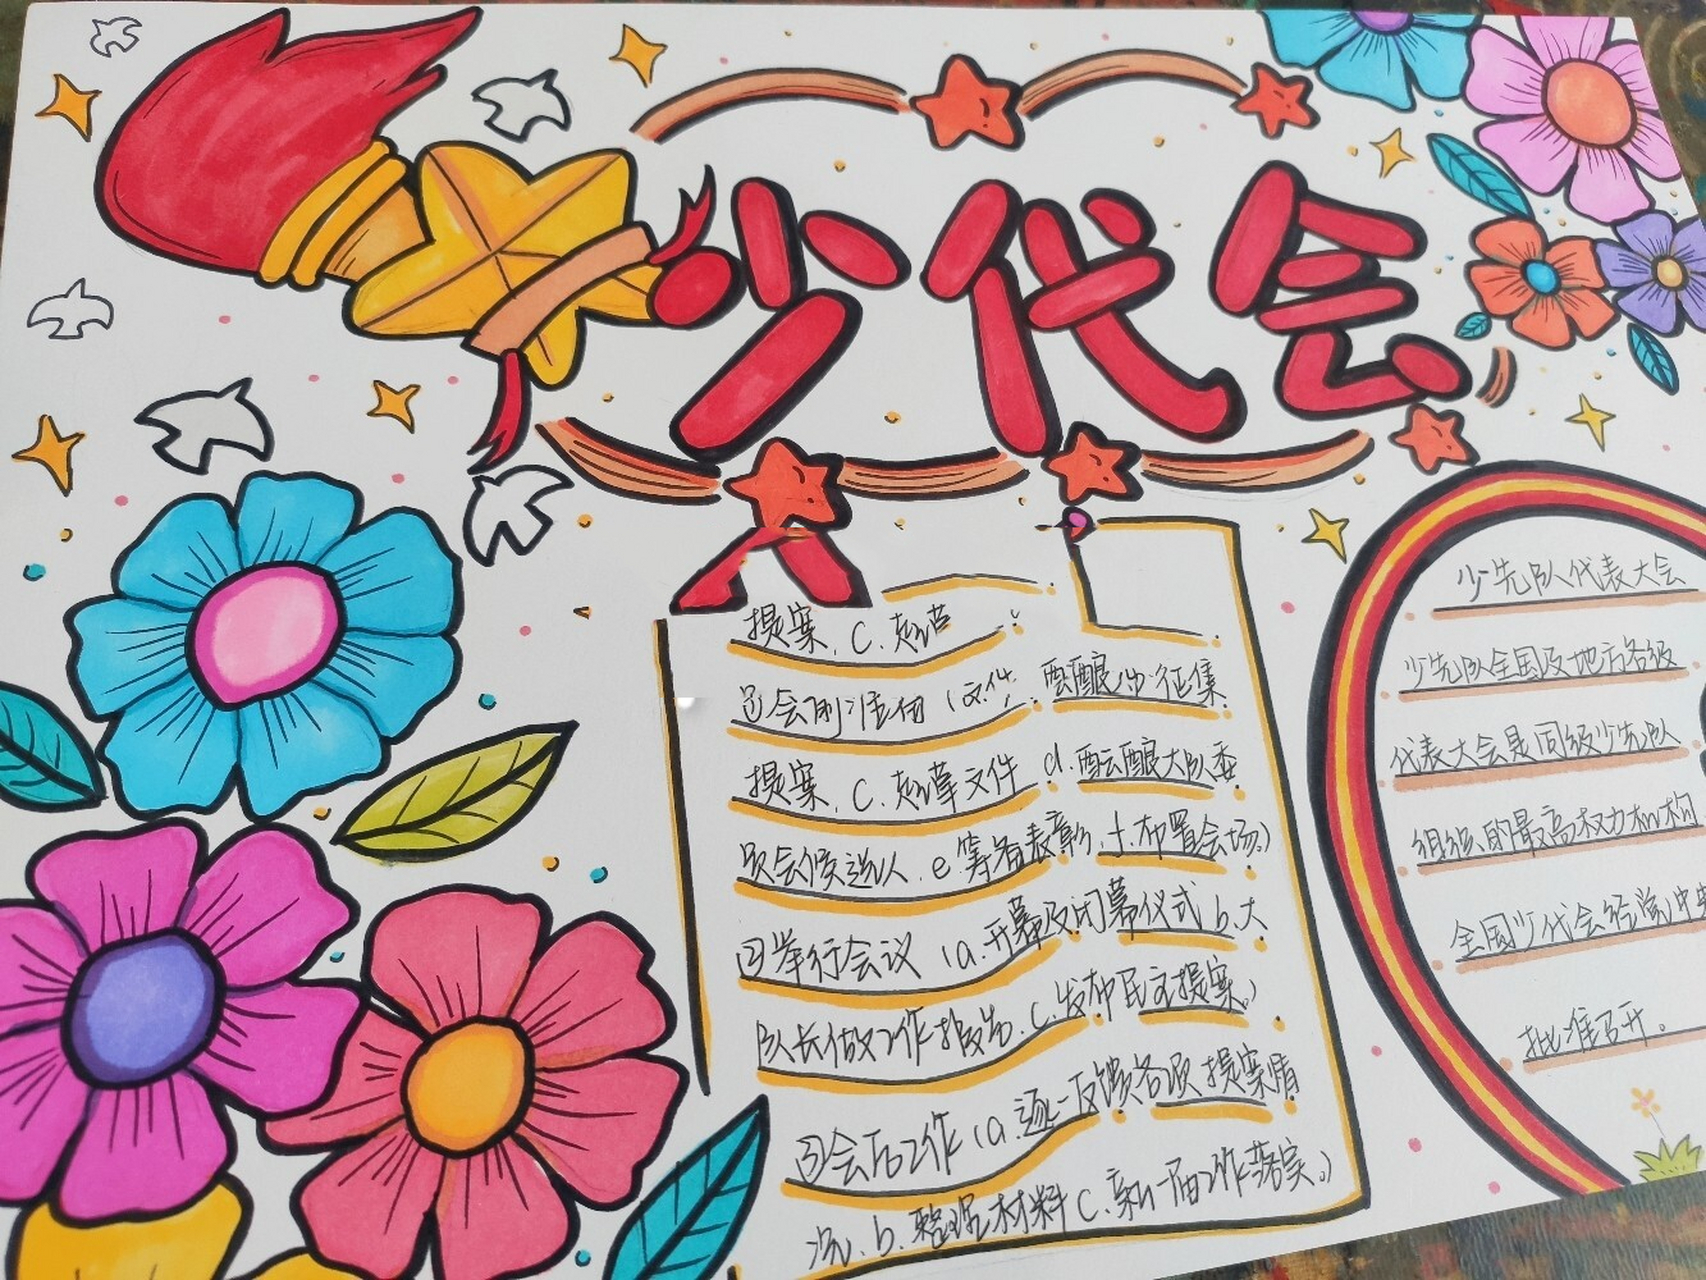 少代会
提案. C. 起草
①会前准备(文件. 酝酿 征集
提案. C. 起草文件 d.酝酿大队委
员会候选人. e.筹备表彰, f.布置会场)
②举行会议 (a.开幕及闭幕仪式 b.大
队长做工作报告. C.发布民主提案。)
③会后工作(a.逐一反馈各项提案情
况. b.整理材料 C.新一届工作落实。)
少先队代表大会
少先队全国及地方各级
代表大会是同级少先队
组织的最高权力机构
全国少代会经党中央
批准召开。